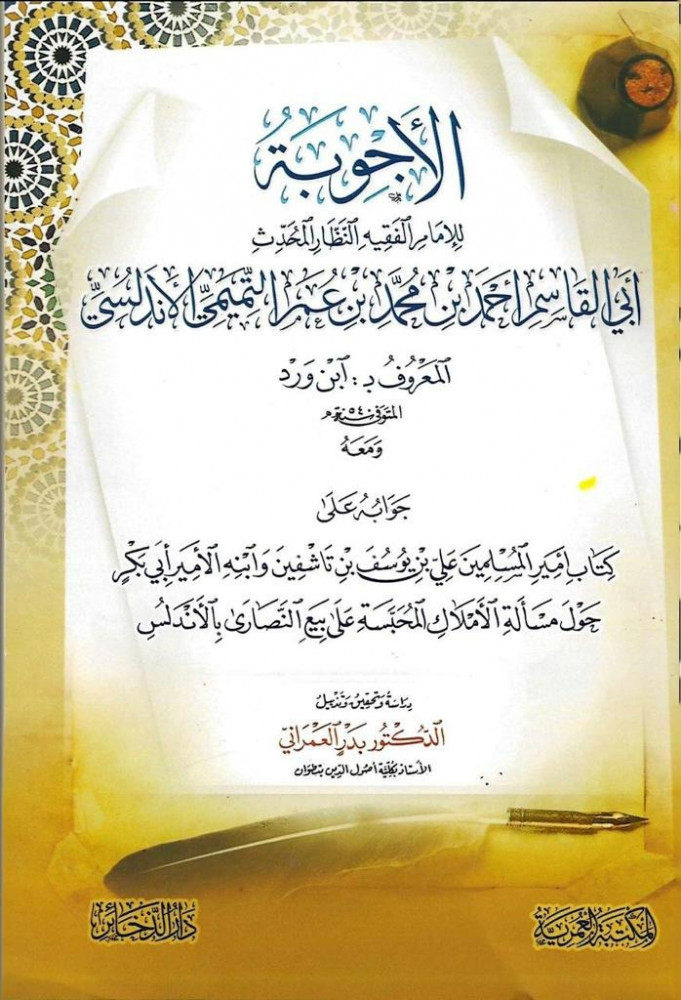 الأَجْوِبَةُ
لِلإِمَامِ الْفَقِيهِ النَّظَّارِ الْمُحَدِّثِ
أَبِي الْقَاسِمِ أَحْمَدَ بْنِ مُحَمَّدِ بْنِ عُمَرَ التَّمِيمِيِّ الأَنْدَلُسِيِّ
الْمَعْرُوفُ بـ : ابْنِ وَرْدٍ
المتوفى سنة ٥٤٠هـ
وَمَعَهُ
جَوَابُهُ عَلَى
كِتَابِ أَمِيرِ الْمُسْلِمِينَ عَلِيِّ بْنِ يُوسُفَ بْنِ تَاشْفِينَ وَابْنِهِ الأَمِيرِ أَبِي بَكْرٍ
حَوْلَ مَسْأَلَةِ الأَمْلَاكِ الْمُحَبَّسَةِ عَلَى بِيَعِ النَّصَارَى بِالأَنْدَلُسِ
دراسة وتحقيق وتذييل
الدُّكْتُور بَدْرِ الْعَمْرَانِي
الأستاذ بكلية أصول الدين بتطوان
المكتبة العمرية
دار الذخائر